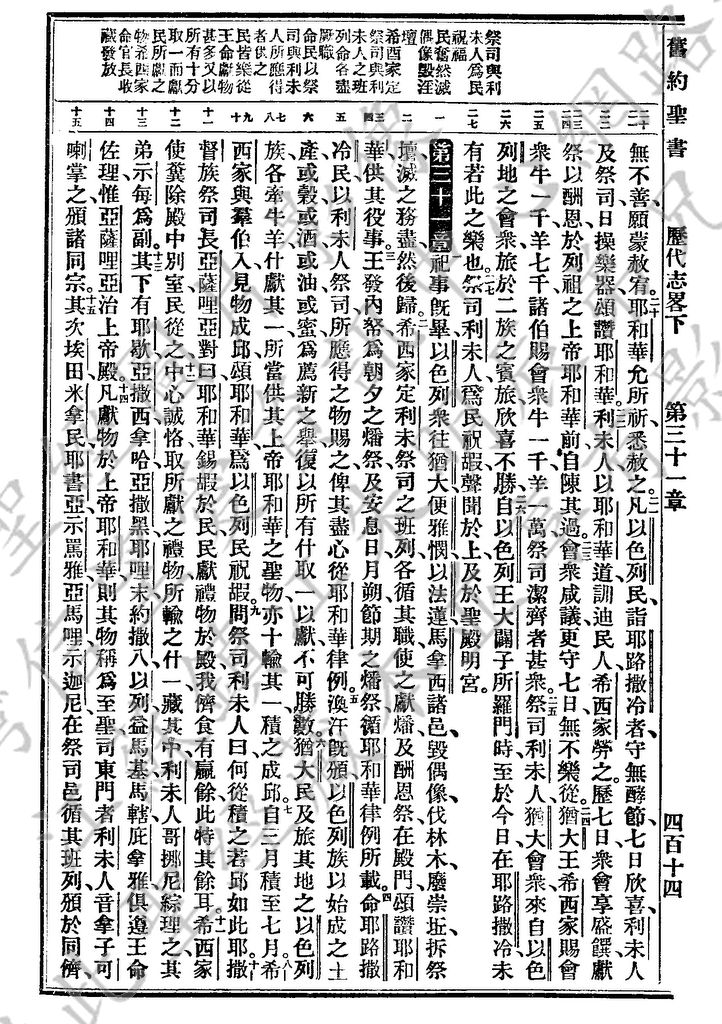 舊約聖書 歷代志畧下 第三十一章 四百十四
祭司與利
未人爲民
祝福
民奮然滅
偶像毀淫
壇
希西家定
祭司與利
未人之班
列命各盡
厥職
命民以祭
司與利未
人所應得
者供之
民皆樂從
王命獻物
甚多又以
所有十分
取一而獻
民所獻之
物希西家
命官長收
藏發放
無不善願蒙赦宥耶和華允所祈悉赦之凡以色列民詣耶路撒冷者守無酵節七日欣喜利未人
及祭司日操樂器頌讚耶和華利未人以耶和華道訓迪民人希西家勞之歷七日衆會享盛饌獻
祭以酬恩於列祖之上帝耶和華前自陳其過會衆咸議更守七日無不樂從猶大王希西家賜會
衆牛一千羊七千諸伯賜會衆牛一千羊一萬祭司潔齊者甚衆祭司利未人猶大會衆來自以色
列地之會衆旅於二族之賓旅欣喜不勝自以色列王大闢子所羅門時至於今日在耶路撒冷未
有若此之樂也祭司利未人爲民祝嘏聲聞於上及於聖殿明宮
第三十一章 祀事既畢以色列衆往猶大便雅憫以法蓮馬拿西諸邑毀偶像伐林木廢崇坵拆祭
壇滅之務盡然後歸希西家定利未祭司之班列各循其職使之獻燔及酬恩祭在殿門頌讚耶和
華供其役事王發內帑爲朝夕之燔祭及安息日月朔節期之燔祭循耶和華律例所載命耶路撒
冷民以利未人祭司所應得之物賜之俾其盡心從耶和華律例渙汗既頒以色列族以始成之土
產或穀或酒或油或蜜爲薦新之舉復以所有什取一以獻不可勝數猶大民及旅其地之以色列
族各牽牛羊什獻其一所當供其上帝耶和華之聖物亦十輸其一積之成邱自三月積至七月希
西家與羣伯入見物成邱頌耶和華爲以色列民祝嘏問祭司利未人曰何從積之若邱如此耶撒
督族祭司長亞薩哩亞對曰耶和華錫嘏於民民獻禮物於殿我儕食有贏餘此特其餘耳希西家
使糞除殿中別室民從之中心誠恪取所獻之禮物所輸之什一藏其中利未人哥挪尼綜理之其
弟示每爲副其下有耶歇亞撒西拿哈亞撒黑耶哩末約撒八以列益馬基馬轄庇拿雅俱遵王命
佐理惟亞薩哩亞治上帝殿凡獻物於上帝耶和華則其物稱爲至聖司東門者利未人音拿子可
喇掌之頒諸同宗其次埃田米拿民耶書亞示罵雅亞馬哩示迦尼在祭司邑循其班列頒於同儕